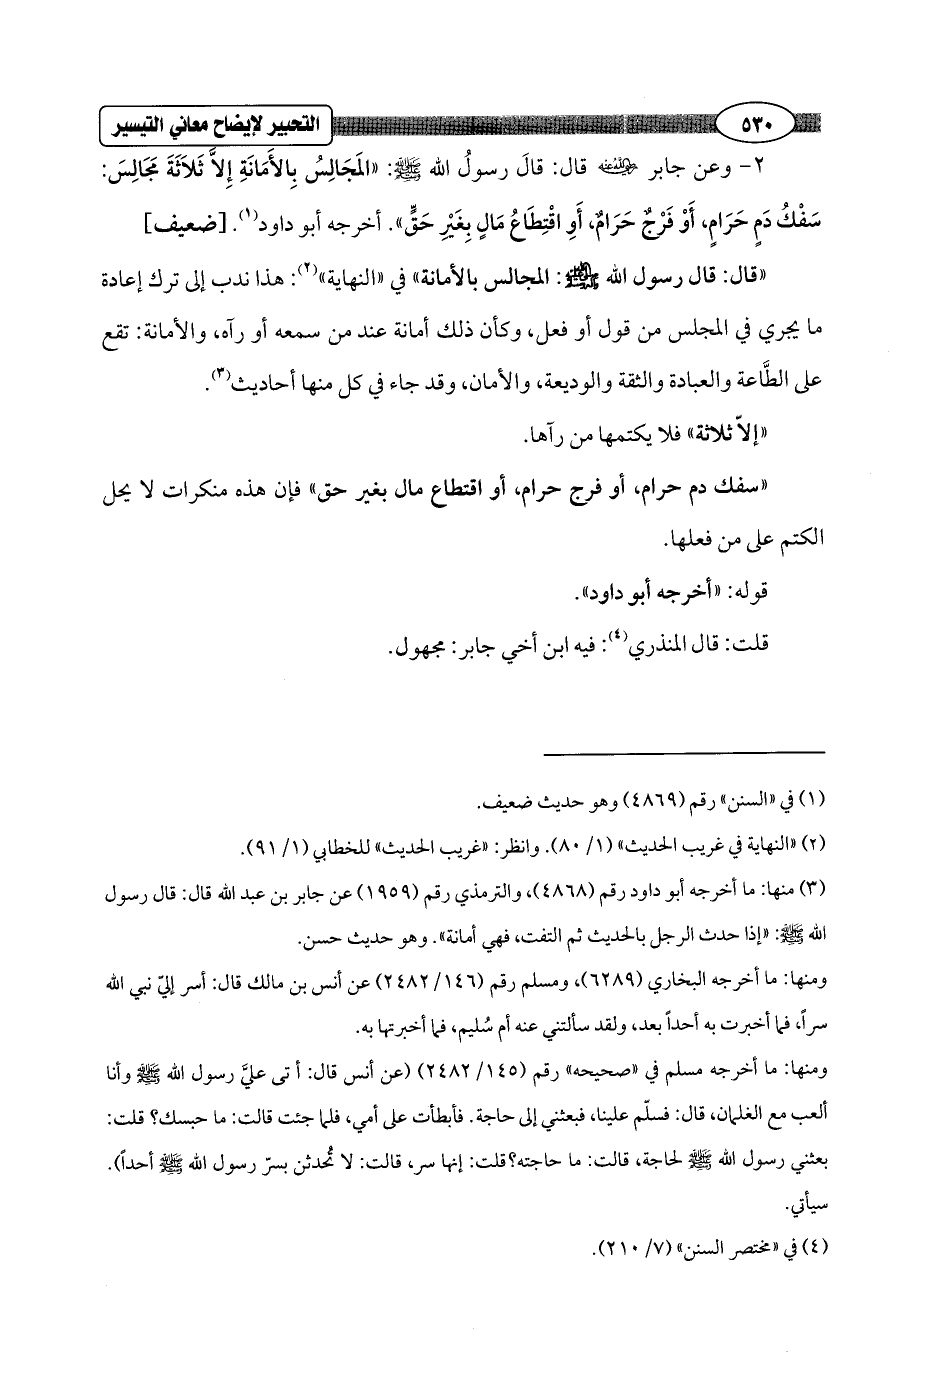 ٥٣٠ التحبير لإيضاح معاني التيسير
٢- وعن جابر رضي الله عنه قال: قالَ رسولُ الله ﷺ: «المَجَالِسُ بِالأَمَانَةِ إِلاَّ ثَلَاثَةَ مَجَالِسَ:
سَفْكُ دَمٍ حَرَامٍ، أَوْ فَرْجٌ حَرَامٌ، أَوِ اقْتِطَاعُ مَالٍ بِغَيْرِ حَقٍّ». أخرجه أبو داود(١). [ضعيف]
«قال: قال رسول الله ﷺ: المجالس بالأمانة» في «النهاية»(٢): هذا ندب إلى ترك إعادة
ما يجري في المجلس من قول أو فعل، وكأن ذلك أمانة عند من سمعه أو رآه، والأمانة: تقع
على الطَّاعة والعبادة والثقة والوديعة، والأمان، وقد جاء في كل منها أحاديث(٣).
«إلاّ ثلاثة» فلا يكتمها من رآها.
«سفك دم حرام، أو فرج حرام، أو اقتطاع مال بغير حق» فإن هذه منكرات لا يحل
الكتم على من فعلها.
قوله: «أخرجه أبو داود».
قلت: قال المنذري(٤): فيه ابن أخي جابر: مجهول.
(١) في «السنن» رقم (٤٨٦٩) وهو حديث ضعيف.
(٢) «النهاية في غريب الحديث» (١/ ٨٠). وانظر: «غريب الحديث» للخطابي (١/ ٩١).
(٣) منها: ما أخرجه أبو داود رقم (٤٨٦٨)، والترمذي رقم (١٩٥٩) عن جابر بن عبد الله قال: قال رسول
الله ﷺ: «إذا حدث الرجل بالحديث ثم التفت، فهي أمانة». وهو حديث حسن.
ومنها: ما أخرجه البخاري (٦٢٨٩)، ومسلم رقم (١٤٦/ ٢٤٨٢) عن أنس بن مالك قال: أسر إليّ نبي الله
سراً، فما أخبرت به أحداً بعد، ولقد سألتني عنه أم سُليم، فما أخبرتها به.
ومنها: ما أخرجه مسلم في «صحيحه» رقم (١٤٥/ ٢٤٨٢) (عن أنس قال: أ تى عليَّ رسول الله ﷺ وأنا
ألعب مع الغلمان، قال: فسلّم علينا، فبعثني إلى حاجة. فأبطأت على أمي، فلما جئت قالت: ما حبسك؟ قلت:
بعثني رسول الله ﷺ لحاجة، قالت: ما حاجته؟قلت: إنها سر، قالت: لا تُحدثن بسرّ رسول الله ﷺ أحداً).
سيأتي.
(٤) في «مختصر السنن» (٧/ ٢١٠).